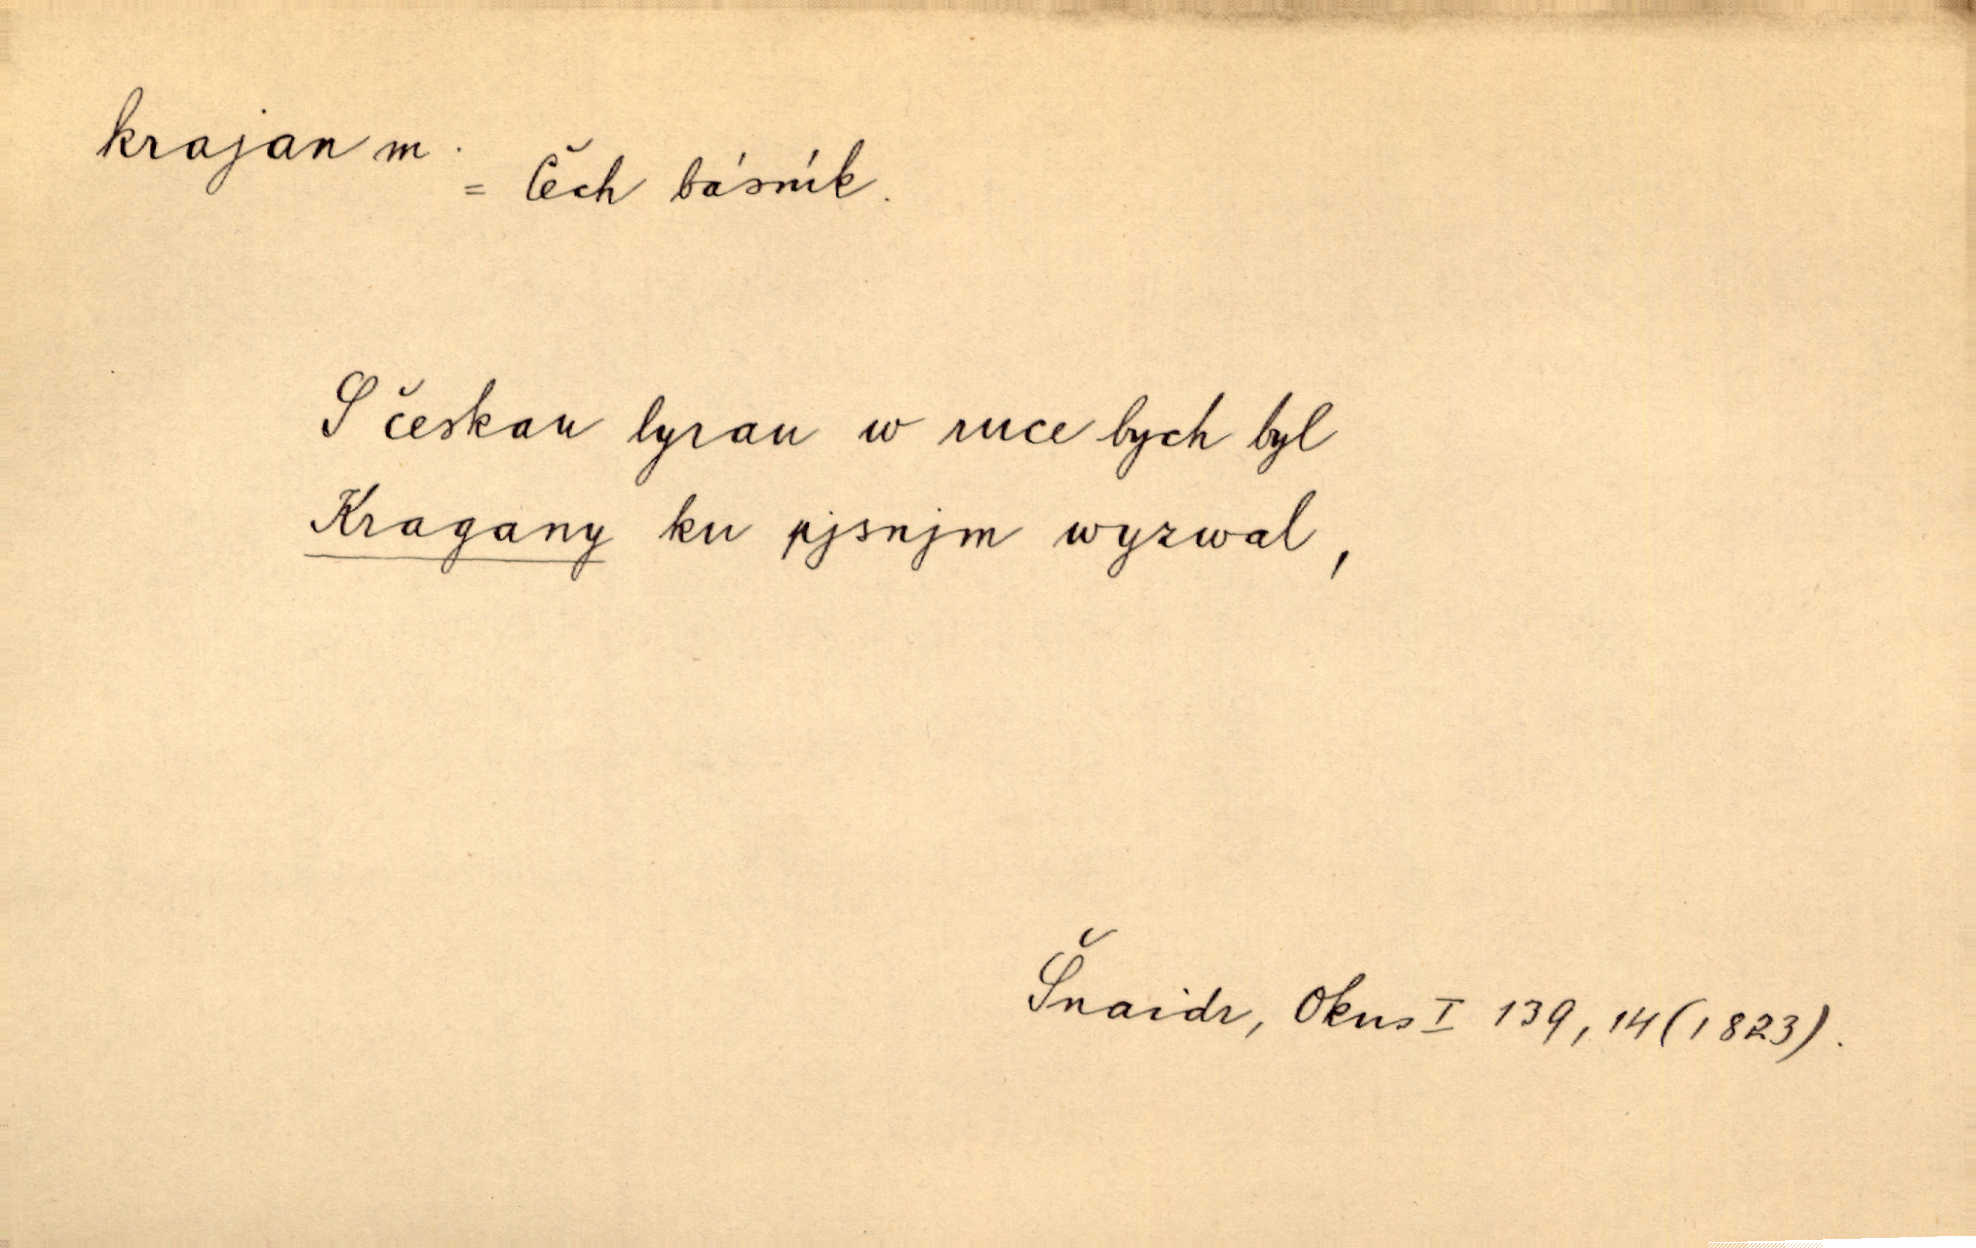 krajan m.
= Čech básník.
S českau lyrau w ruce bych byl
Kragany ku pjsnjm wyzwal,
Šnaidr, Okus I 139, 14 (1823).